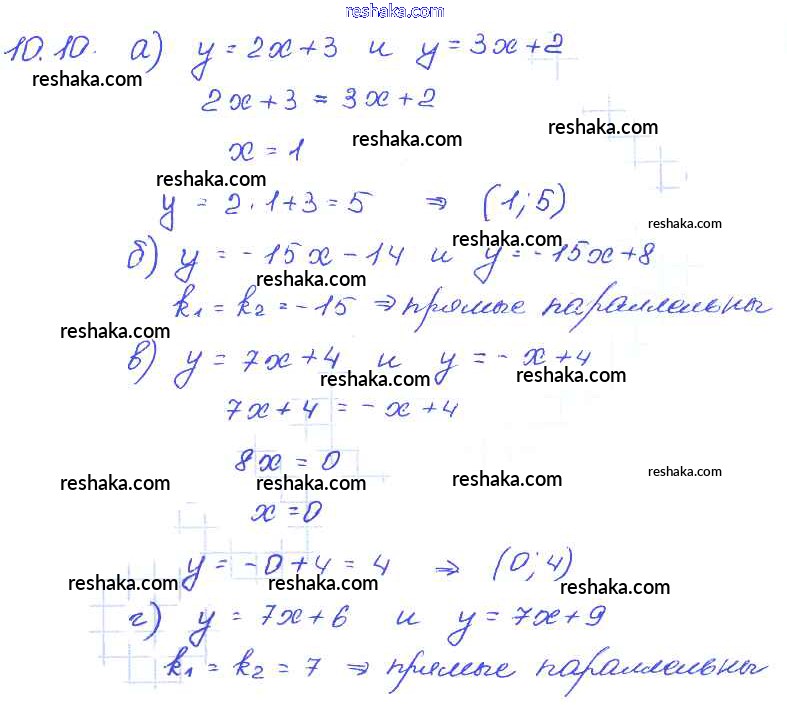 reshaka.com
10.10. а) y = 2x + 3 и y = 3x + 2
reshaka.com
2x + 3 = 3x + 2
reshaka.com
x = 1 reshaka.com
reshaka.com
y = 2 · 1 + 3 = 5 ⇒ (1; 5)
reshaka.com
reshaka.com
б) y = -15x - 14 и y = -15x + 8
reshaka.com
k₁ = k₂ = -15 ⇒ прямые параллельны
reshaka.com
в) y = 7x + 4 и y = -x + 4
reshaka.com reshaka.com
7x + 4 = -x + 4
8x = 0
reshaka.com reshaka.com reshaka.com reshaka.com
x = 0
y = -0 + 4 = 4 ⇒ (0; 4)
reshaka.com reshaka.com reshaka.com
г) y = 7x + 6 и y = 7x + 9
k₁ = k₂ = 7 ⇒ прямые параллельны